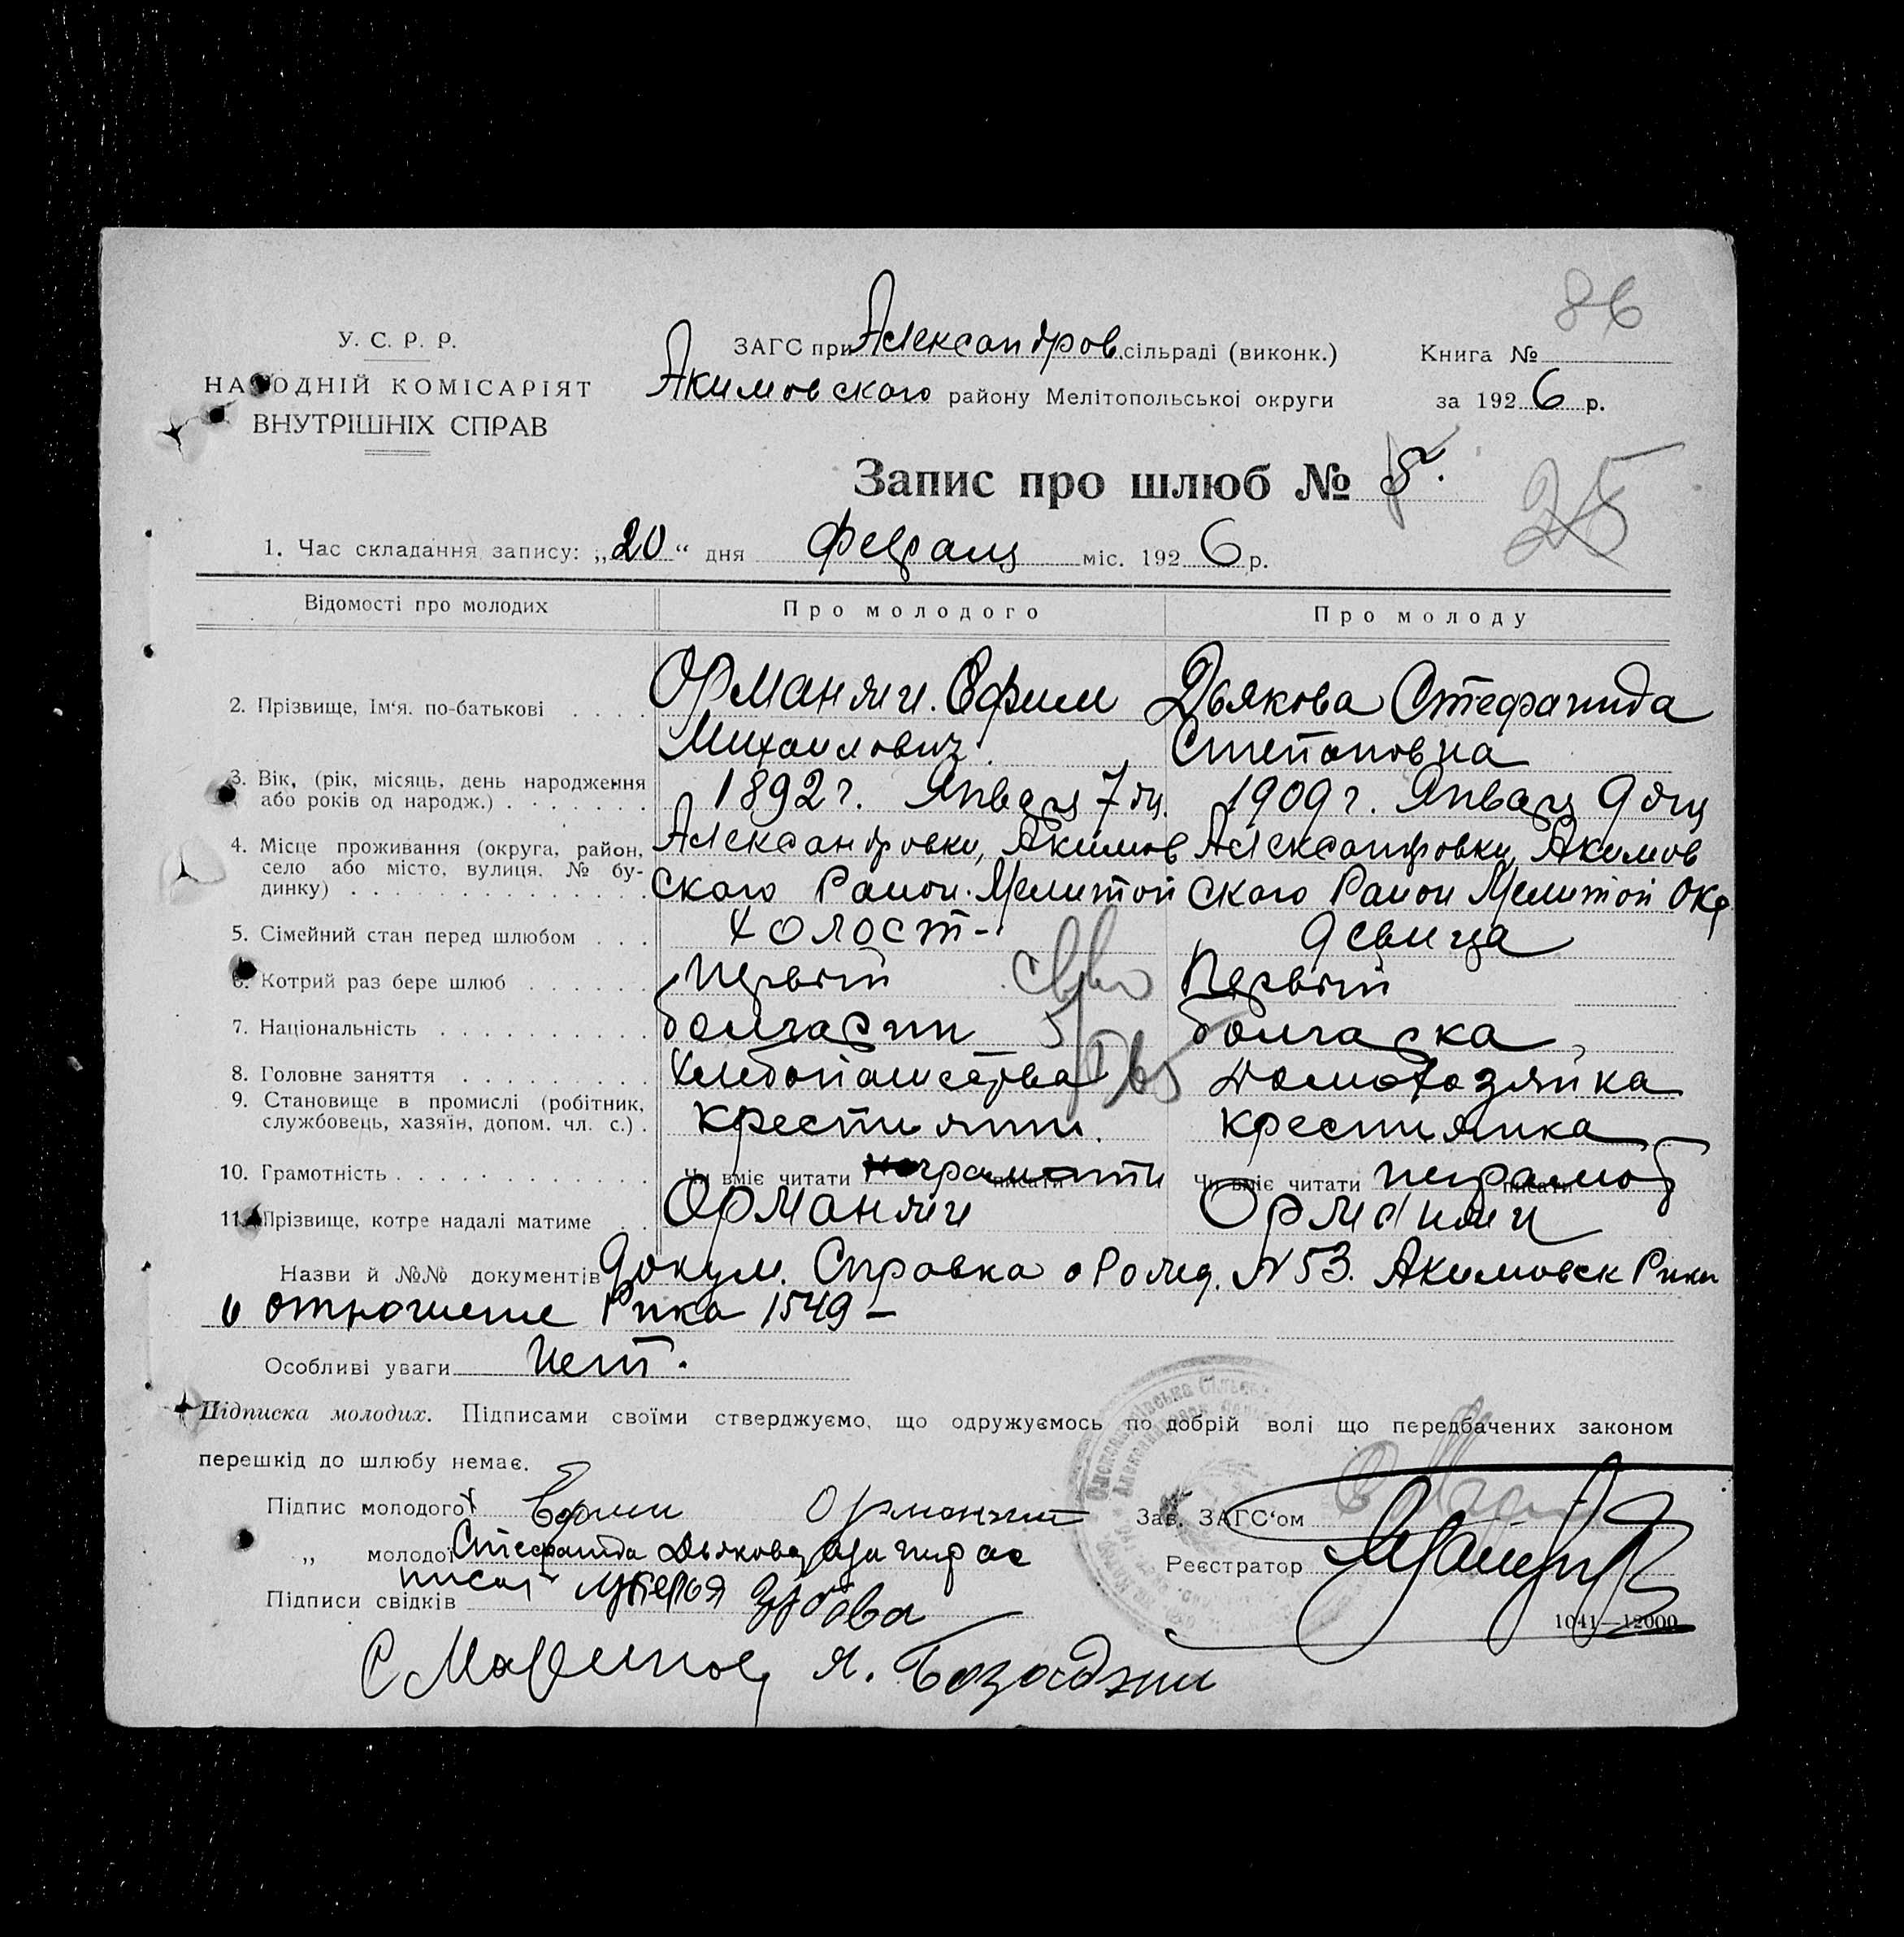 86
У. С. Р. Р.
НАРОДНІЙ КОМІСАРІЯТ
ВНУТРІШНІХ СПРАВ
ЗАГС при Александров. сільраді (виконк.)
Акимовского району Мелітопольської округи
Книга №
за 1926 р.
Запис про шлюб № 8.
25
1. Час складання запису: „20“ дня Февраля міс. 1926 р.
Відомості про молодих Про молодого Про молоду
2. Прізвище, Ім'я. по-батькові Орманжи. Ефим Дьякова Стефанида
Михаилович. Степановна
3. Вік, (рік, місяць, день народження або років од народж.) 1892 г. Января 7 дн. 1909 г. Января 9 дня
4. Місце проживання (округа, район, село або місто, вулиця, № будинку) Александровки, Акимов Александровки, Акимов
ского Район. Мелитоп ского Район Мелитоп Окр
5. Сімейний стан перед шлюбом холост- девица
6. Котрий раз бере шлюб первый Первый
7. Національність болгарин болгарка
8. Головне заняття хлебопашества Домохозяйка
9. Становище в промислі (робітник, службовець, хазяїн, допом. чл. с.) крестьянин. крестьянка
10. Грамотність Чи вміє читати писати Чи вміє читати писати неграмот
11. Прізвище, котре надалі матиме Орманжи Орманжи
Назви й №№ документів Докум. Справка о Рожд. N 53. Акимовск Рика
и отношение Рика 1549 –
Особливі уваги нет.
Підписка молодих. Підписами своїми стверджуємо, що одружуємось по добрій волі що передбачених законом
перешкід до шлюбу немає.
Підпис молодого Ефим Орманжи Зав. ЗАГС'ом
„ молодої Стефанида Дьякова Реєстратор
Підписи свідків
1041—12000